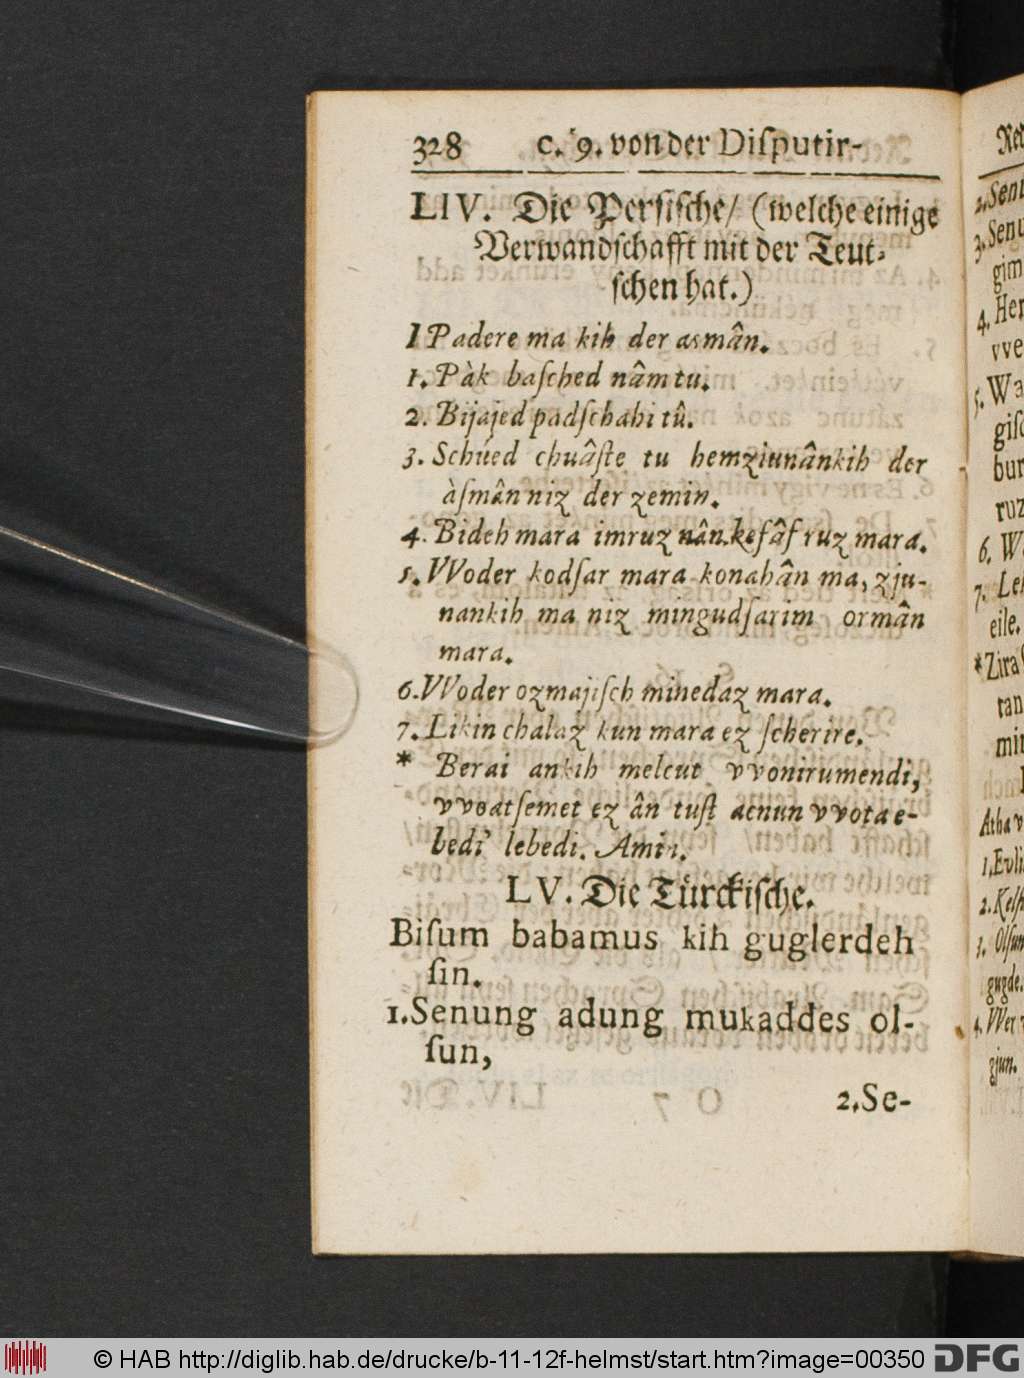 328 c. 9. von der Diſputir-
LIV. Die Perſiſche/ (welche einige
Verwandſchafft mit der Teut-
ſchen hat.)
1 Padere ma kih der asmân.
1. Pàk baſched nâm tu.
2. Bijajed padſchahi tû.
3. Schúed chuâſte tu hemziunânkih der
àſmân niz der zemin.
4. Bideh mara imruz nân kefâf ruz mara.
5. VVoder kodſar mara konahân ma, zju-
nankih ma niz mingudſarim ormân
mara.
6. VVoder ozmajiſch minedaz mara.
7. Likin chalaz kun mara ez ſcherire.
* Berai ankih melcut vvonirumendi,
vvoatſemet ez ân tuſt acnun vvota e-
bedi' lebedi. Amin.
LV. Die Türckiſche.
Biſum babamus kih guglerdeh
ſin.
1. Senung adung mukaddes ol-
ſun,
2. Se-
2. Sent
3. Senu
gim
4. Her
vve
5. Wa
giſc
bur
ruz
6. W
7. Le
eile.
*Zira
ran
min
Atha v
1. Evli
3. Olſun
gugde.
4. VVer
gjun.
© HAB http://diglib.hab.de/drucke/b-11-12f-helmst/start.htm?image=00350 DFG